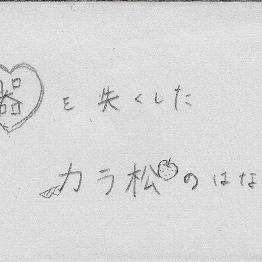 器を失くした
カラ松のはな